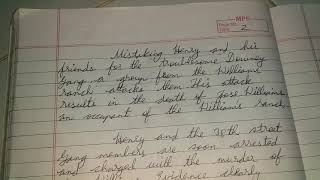 MPE
Page No.
Date 2
Mistaking Henry and his
friends for the troublesome Downey
Gang, a group from the Williams
ranch attacks them. This attack
results in the death of Jose Williams
an occupant of the Williams Ranch.
Henry and the 38th street
Gang members are soon arrested
and charged with the murder of
Evidence clearly